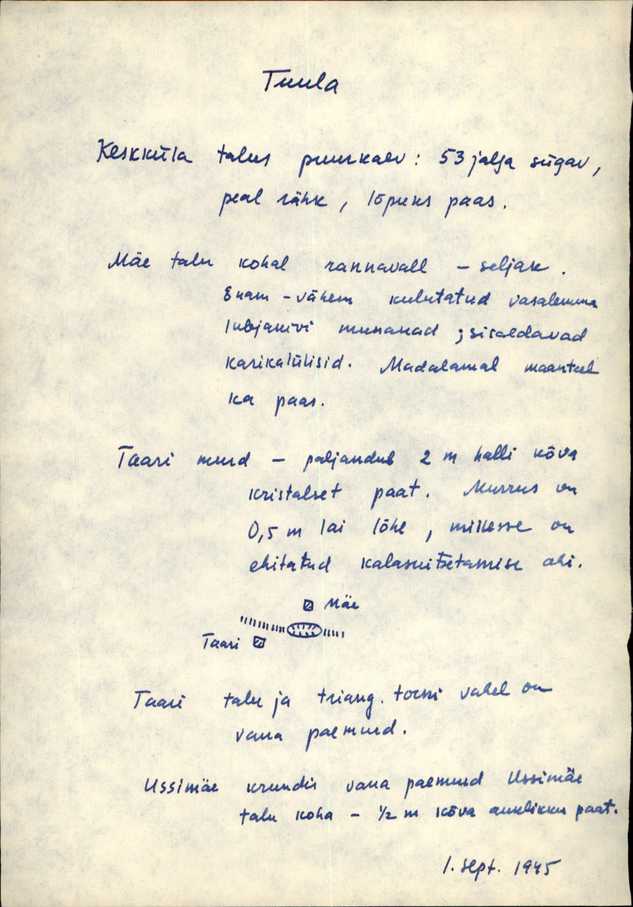 Tuula
Keskküla talus puurkaev : 53 jalga sügav,
peal rähk, lõpuks paas.
Mäe talu kohal rannavall – seljak.
Enam-vähem kulutatud vasalemma
lubjakivi munakad ; sisaldavad
karikalülisid. Madalamal maanteel
ka paas.
Taari murd – paljandub 2 m halli kõva
kristalset paat. Murrus on
0,5 m lai lõhe, millesse on
ehitatud kalasuitsetamise ahi.
Mäe
Taari
Taari talu ja triang. torni vahel on
vana paemurd.
Ussimäe krundis vana paemurd Ussimäe
talu koha – 1/2 m kõva auklikku paat.
1. sept. 1945